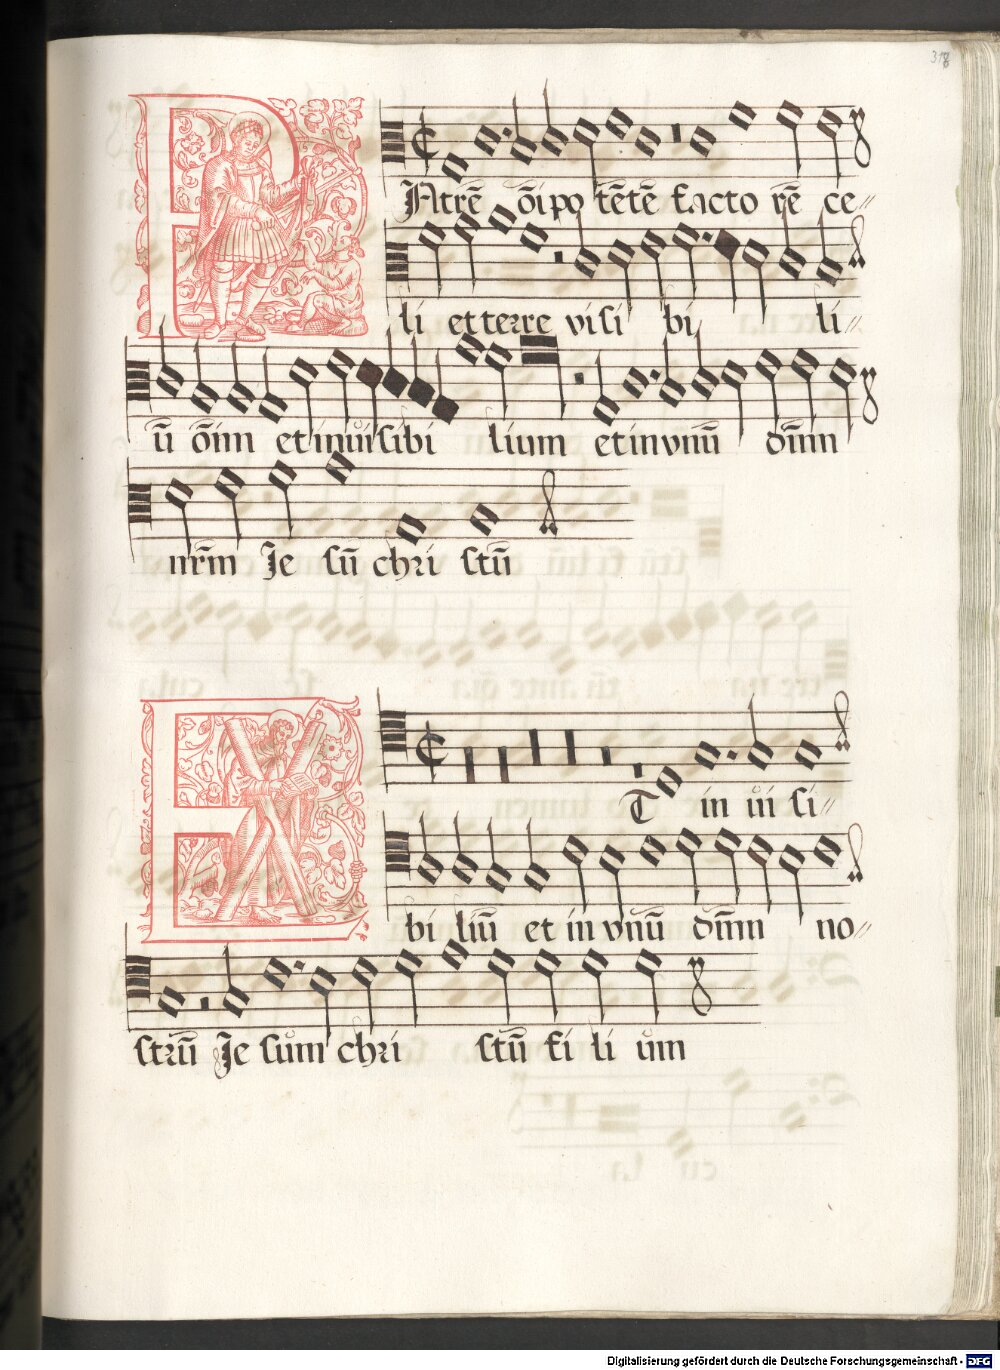 318
PAtrē ōīpo tētē facto rē ce
li et terre visi bi li
ū ōīm et inuīsibi lium et in vnū dn̄m
nr̄m Je sū chri stū
ET in īu si
bi liū et in vnū dn̄m no
strū Je sum chri stū fi li um
Digitalisierung gefördert durch die Deutsche Forschungsgemeinschaft - DFG